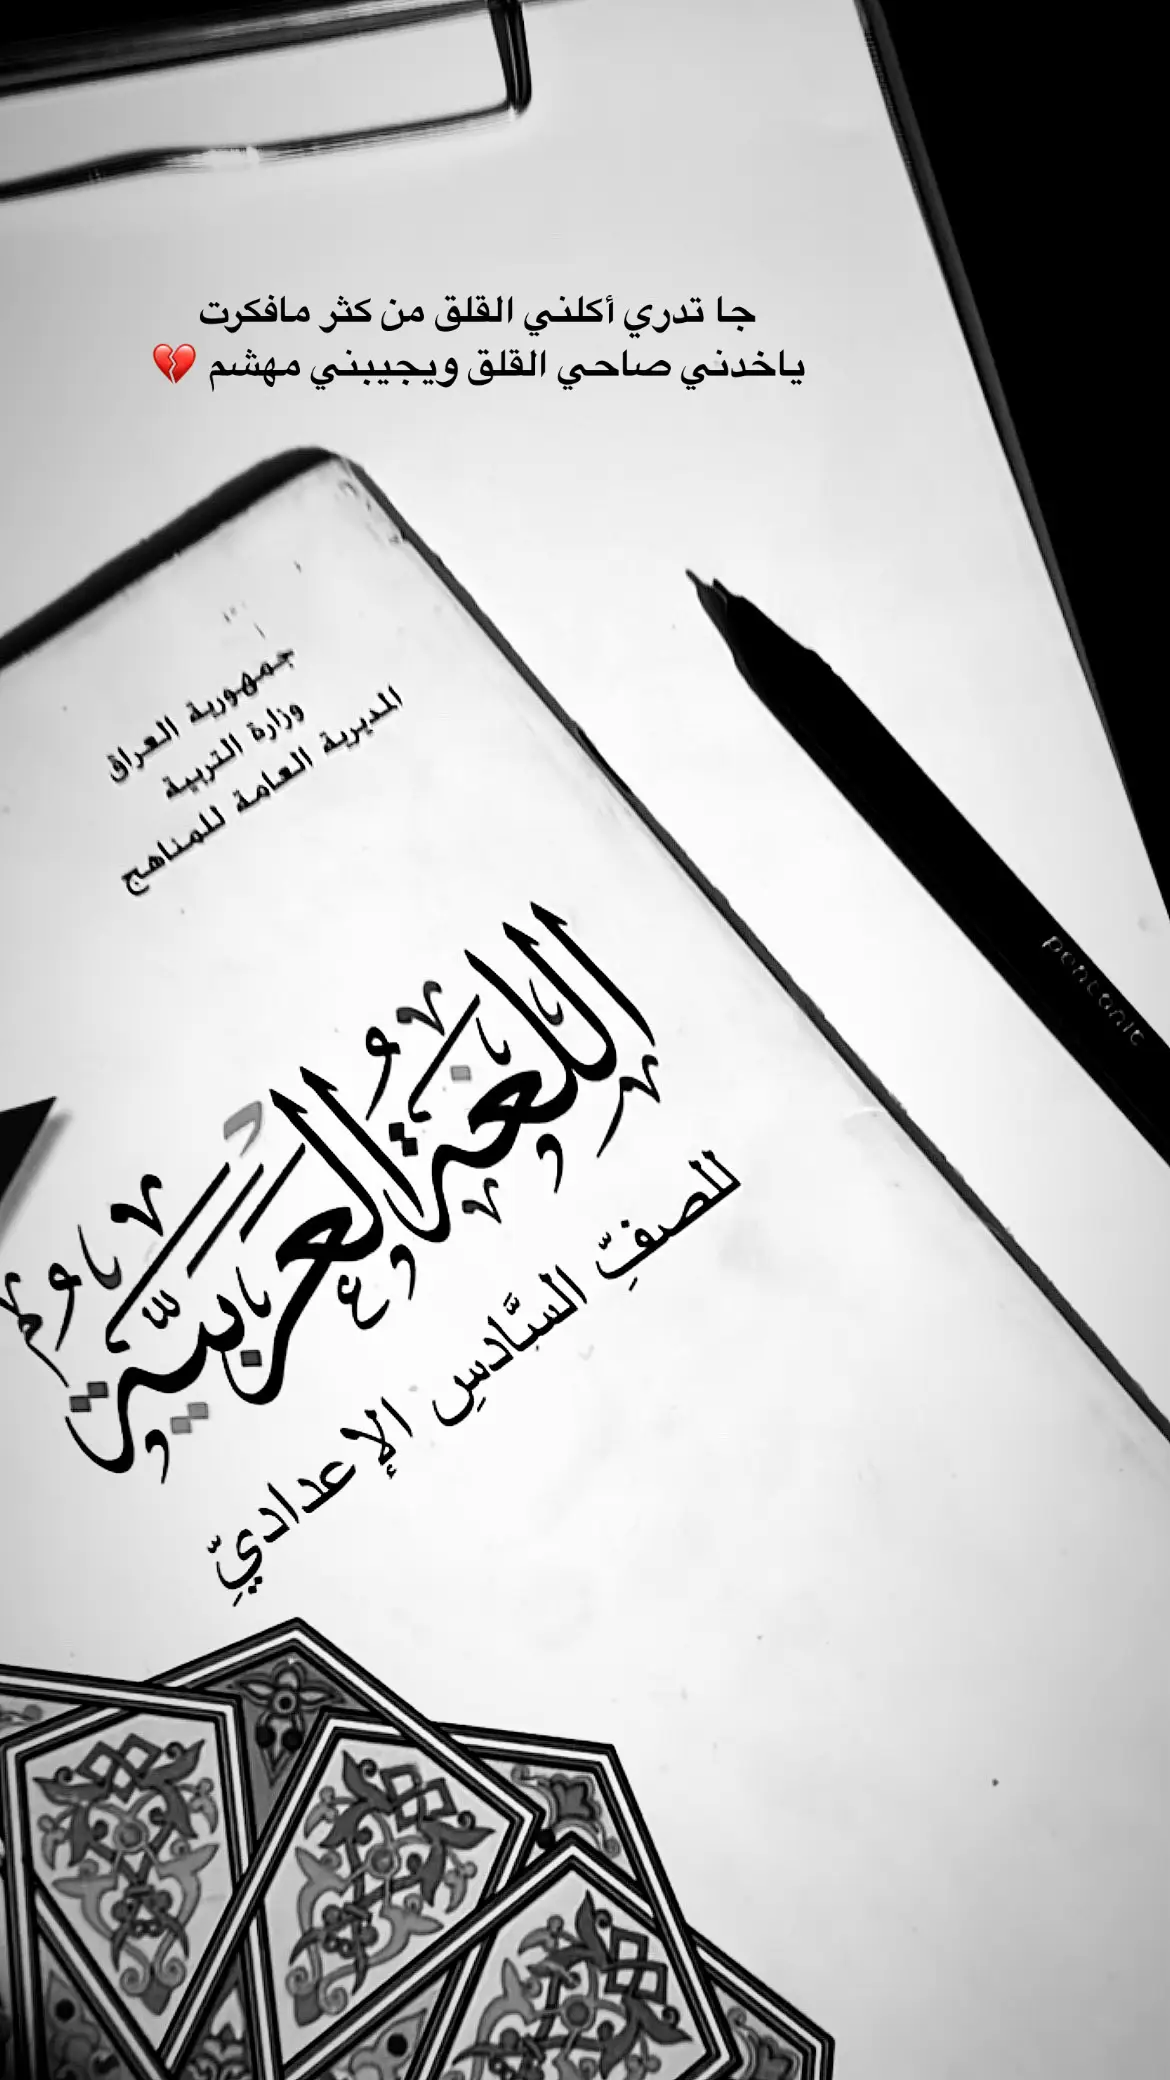 جا تدري أكلني القلق من كثر مافكرت
ياخدني صاحي القلق ويجيبني مهشم 💔
جمهورية العراق
وزارة التربية
المديرية العامة للمناهج
اللغة العربية
للصفِّ السَّادسِ الإعداديِّ
pentonic